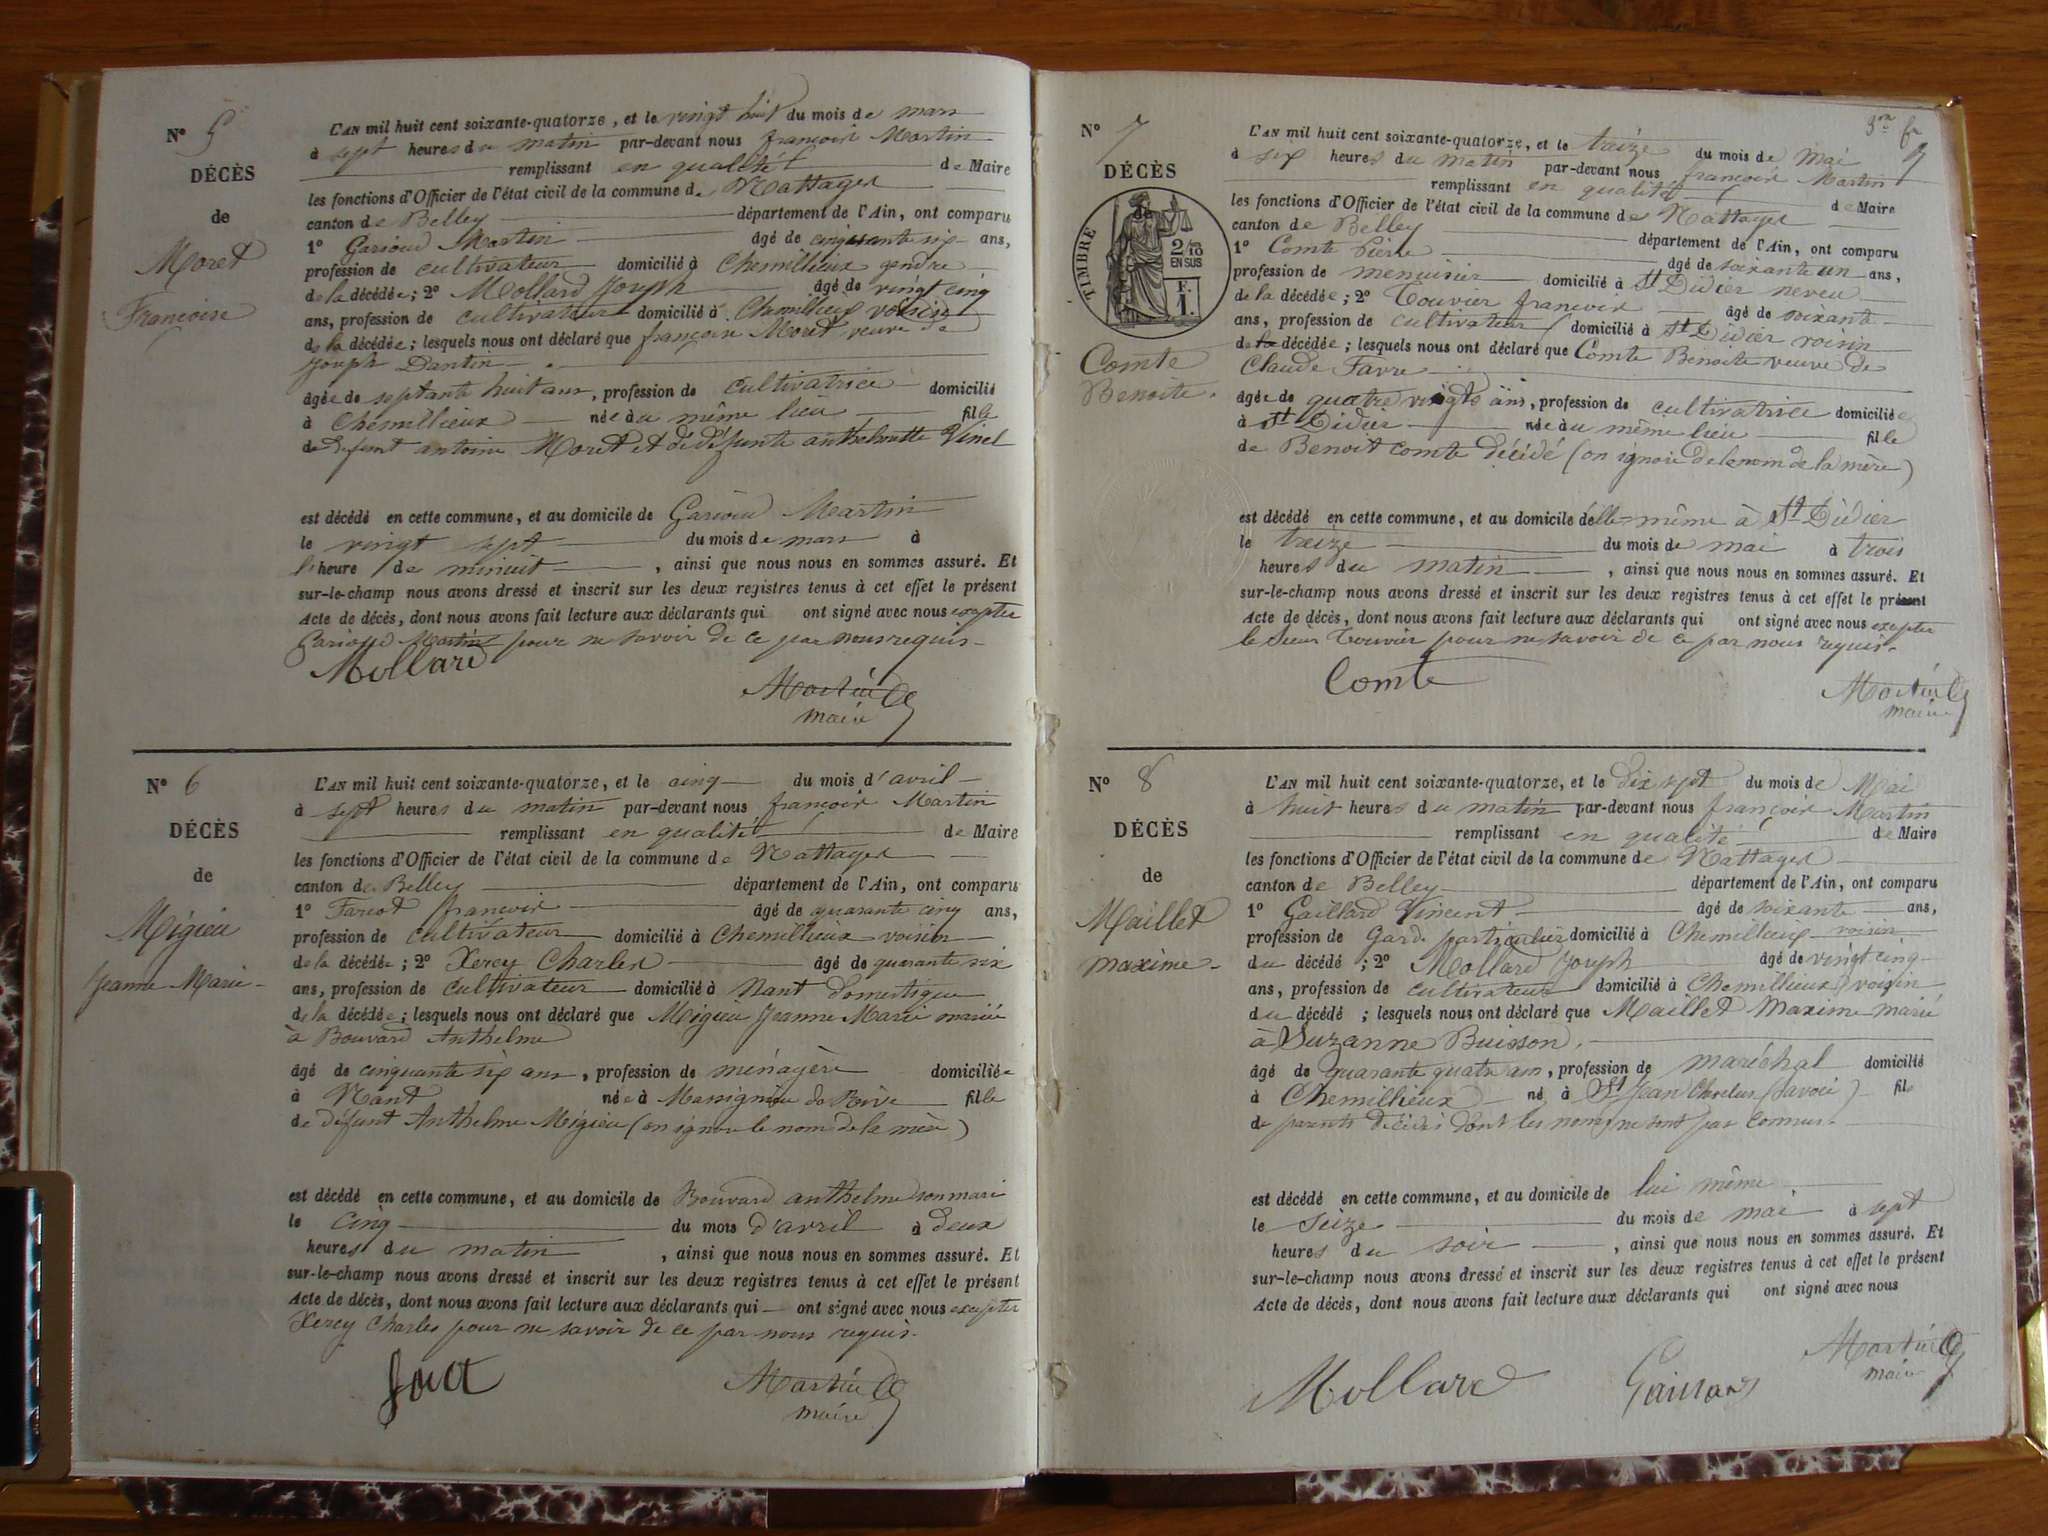 N° 5
DÉCÈS
de
Moret
Françoise
L'AN mil huit cent soixante-quatorze, et le vingt huit du mois de mars
à sept heures du matin par-devant nous françois Martin
remplissant en qualité de Maire
les fonctions d'Officier de l'état civil de la commune de Nattages
canton de Belley département de l'Ain, ont comparu
1° Garioud Martin âgé de cinquante six ans,
profession de cultivateur domicilié à Chemillieux gendre
de la décédée; 2° Mollard Joseph âgé de vingt cinq
ans, profession de cultivateur domicilié à Chemillieux voisin
de la décédée; lesquels nous ont déclaré que françoise Moret veuve de
Joseph Dantin
âgée de septante huit ans, profession de cultivatrice domicilié
à Chemillieux née au même lieu fille
de defunt antoine Moret et de défunte anthelmette Vinel
est décédé en cette commune, et au domicile de Garioud Martin
le vingt sept du mois de mars à
l'heure de minuit, ainsi que nous nous en sommes assuré. Et
sur-le-champ nous avons dressé et inscrit sur les deux registres tenus à cet effet le présent
Acte de décès, dont nous avons fait lecture aux déclarants qui ont signé avec nous excepter
Garioud Martin pour ne savoir de ce par nous requis.
Mollard
Martin
maire
N° 6
DÉCÈS
de
Mégieu
Jeanne Marie
L'AN mil huit cent soixante-quatorze, et le cinq du mois d'avril
à sept heures du matin par-devant nous françois Martin
remplissant en qualité de Maire
les fonctions d'Officier de l'état civil de la commune de Nattages
canton de Belley département de l'Ain, ont comparu
1° françois âgé de quarante cinq ans,
profession de cultivateur domicilié à Chemillieux voisin
de la décédée; 2° Xerey Charles âgé de quarante six
ans, profession de cultivateur domicilié à Nant domestique
de la décédée; lesquels nous ont déclaré que Mégieu Jeanne Marie mariée
à Bouvard Anthelme
âgé de cinquante six ans, profession de ménagère domiciliée
à Nant née à Massignieu de Rive fille
de défunt Anthelme Mégieu (on ignore le nom de la mère)
est décédé en cette commune, et au domicile de Bouvard anthelme son mari
le cinq du mois d'avril à deux
heures du matin, ainsi que nous nous en sommes assuré. Et
sur-le-champ nous avons dressé et inscrit sur les deux registres tenus à cet effet le présent
Acte de décès, dont nous avons fait lecture aux déclarants qui ont signé avec nous excepter
Xerey Charles pour ne savoir de ce par nous requis.
Martin
maire
N° 7
DÉCÈS
TIMBRE
2/10
EN SUS
F.
1.
Comte
Benoite.
L'AN mil huit cent soixante-quatorze, et le treize du mois de mai
à six heures du matin par-devant nous françois Martin
remplissant en qualité de Maire
les fonctions d'Officier de l'état civil de la commune de Nattages
canton de Belley département de l'Ain, ont comparu
1° Comte Pierre âgé de soixante un ans,
profession de menuisier domicilié à St Didier neveu
de la décédée; 2° Touvier françois âgé de soixante
ans, profession de cultivateur domicilié à St Didier voisin
de la décédée; lesquels nous ont déclaré que Comte Benoite veuve de
Claude Favre
âgée de quatre vingts ans, profession de cultivatrice domiciliée
à St Didier née au même lieu fille
de Benoit comte décédé (on ignore de le nom de la mère)
est décédé en cette commune, et au domicile d'elle-même à St Didier
le treize du mois de mai à trois
heures du matin, ainsi que nous nous en sommes assuré. Et
sur-le-champ nous avons dressé et inscrit sur les deux registres tenus à cet effet le présent
Acte de décès, dont nous avons fait lecture aux déclarants qui ont signé avec nous excepter
le sieur Touvier pour ne savoir de ce par nous requis.
Comte
Martin
maire
N° 8
DÉCÈS
de
Maillet
maxime
L'AN mil huit cent soixante-quatorze, et le dix sept du mois de Mai
à huit heures du matin par-devant nous françois Martin
remplissant en qualité de Maire
les fonctions d'Officier de l'état civil de la commune de Nattages
canton de Belley département de l'Ain, ont comparu
1° Gaillard Vincent âgé de soixante ans,
profession de Garde particulier domicilié à Chemillieux voisin
du décédé; 2° Mollard Joseph âgé de vingt cinq
ans, profession de cultivateur domicilié à Chemillieux voisin
du décédé; lesquels nous ont déclaré que Maillet Maxime marié
à Suzanne Buisson.
âgé de quarante quatre ans, profession de maréchal domicilié
à Chemillieux né à St Jean Chevelus (Savoie) fils
de parents décédés dont les noms ne sont pas connus.
est décédé en cette commune, et au domicile de lui même
le seize du mois de mai à sept
heures du soir, ainsi que nous nous en sommes assuré. Et
sur-le-champ nous avons dressé et inscrit sur les deux registres tenus à cet effet le présent
Acte de décès, dont nous avons fait lecture aux déclarants qui ont signé avec nous
Mollard Gaillard
Martin
maire